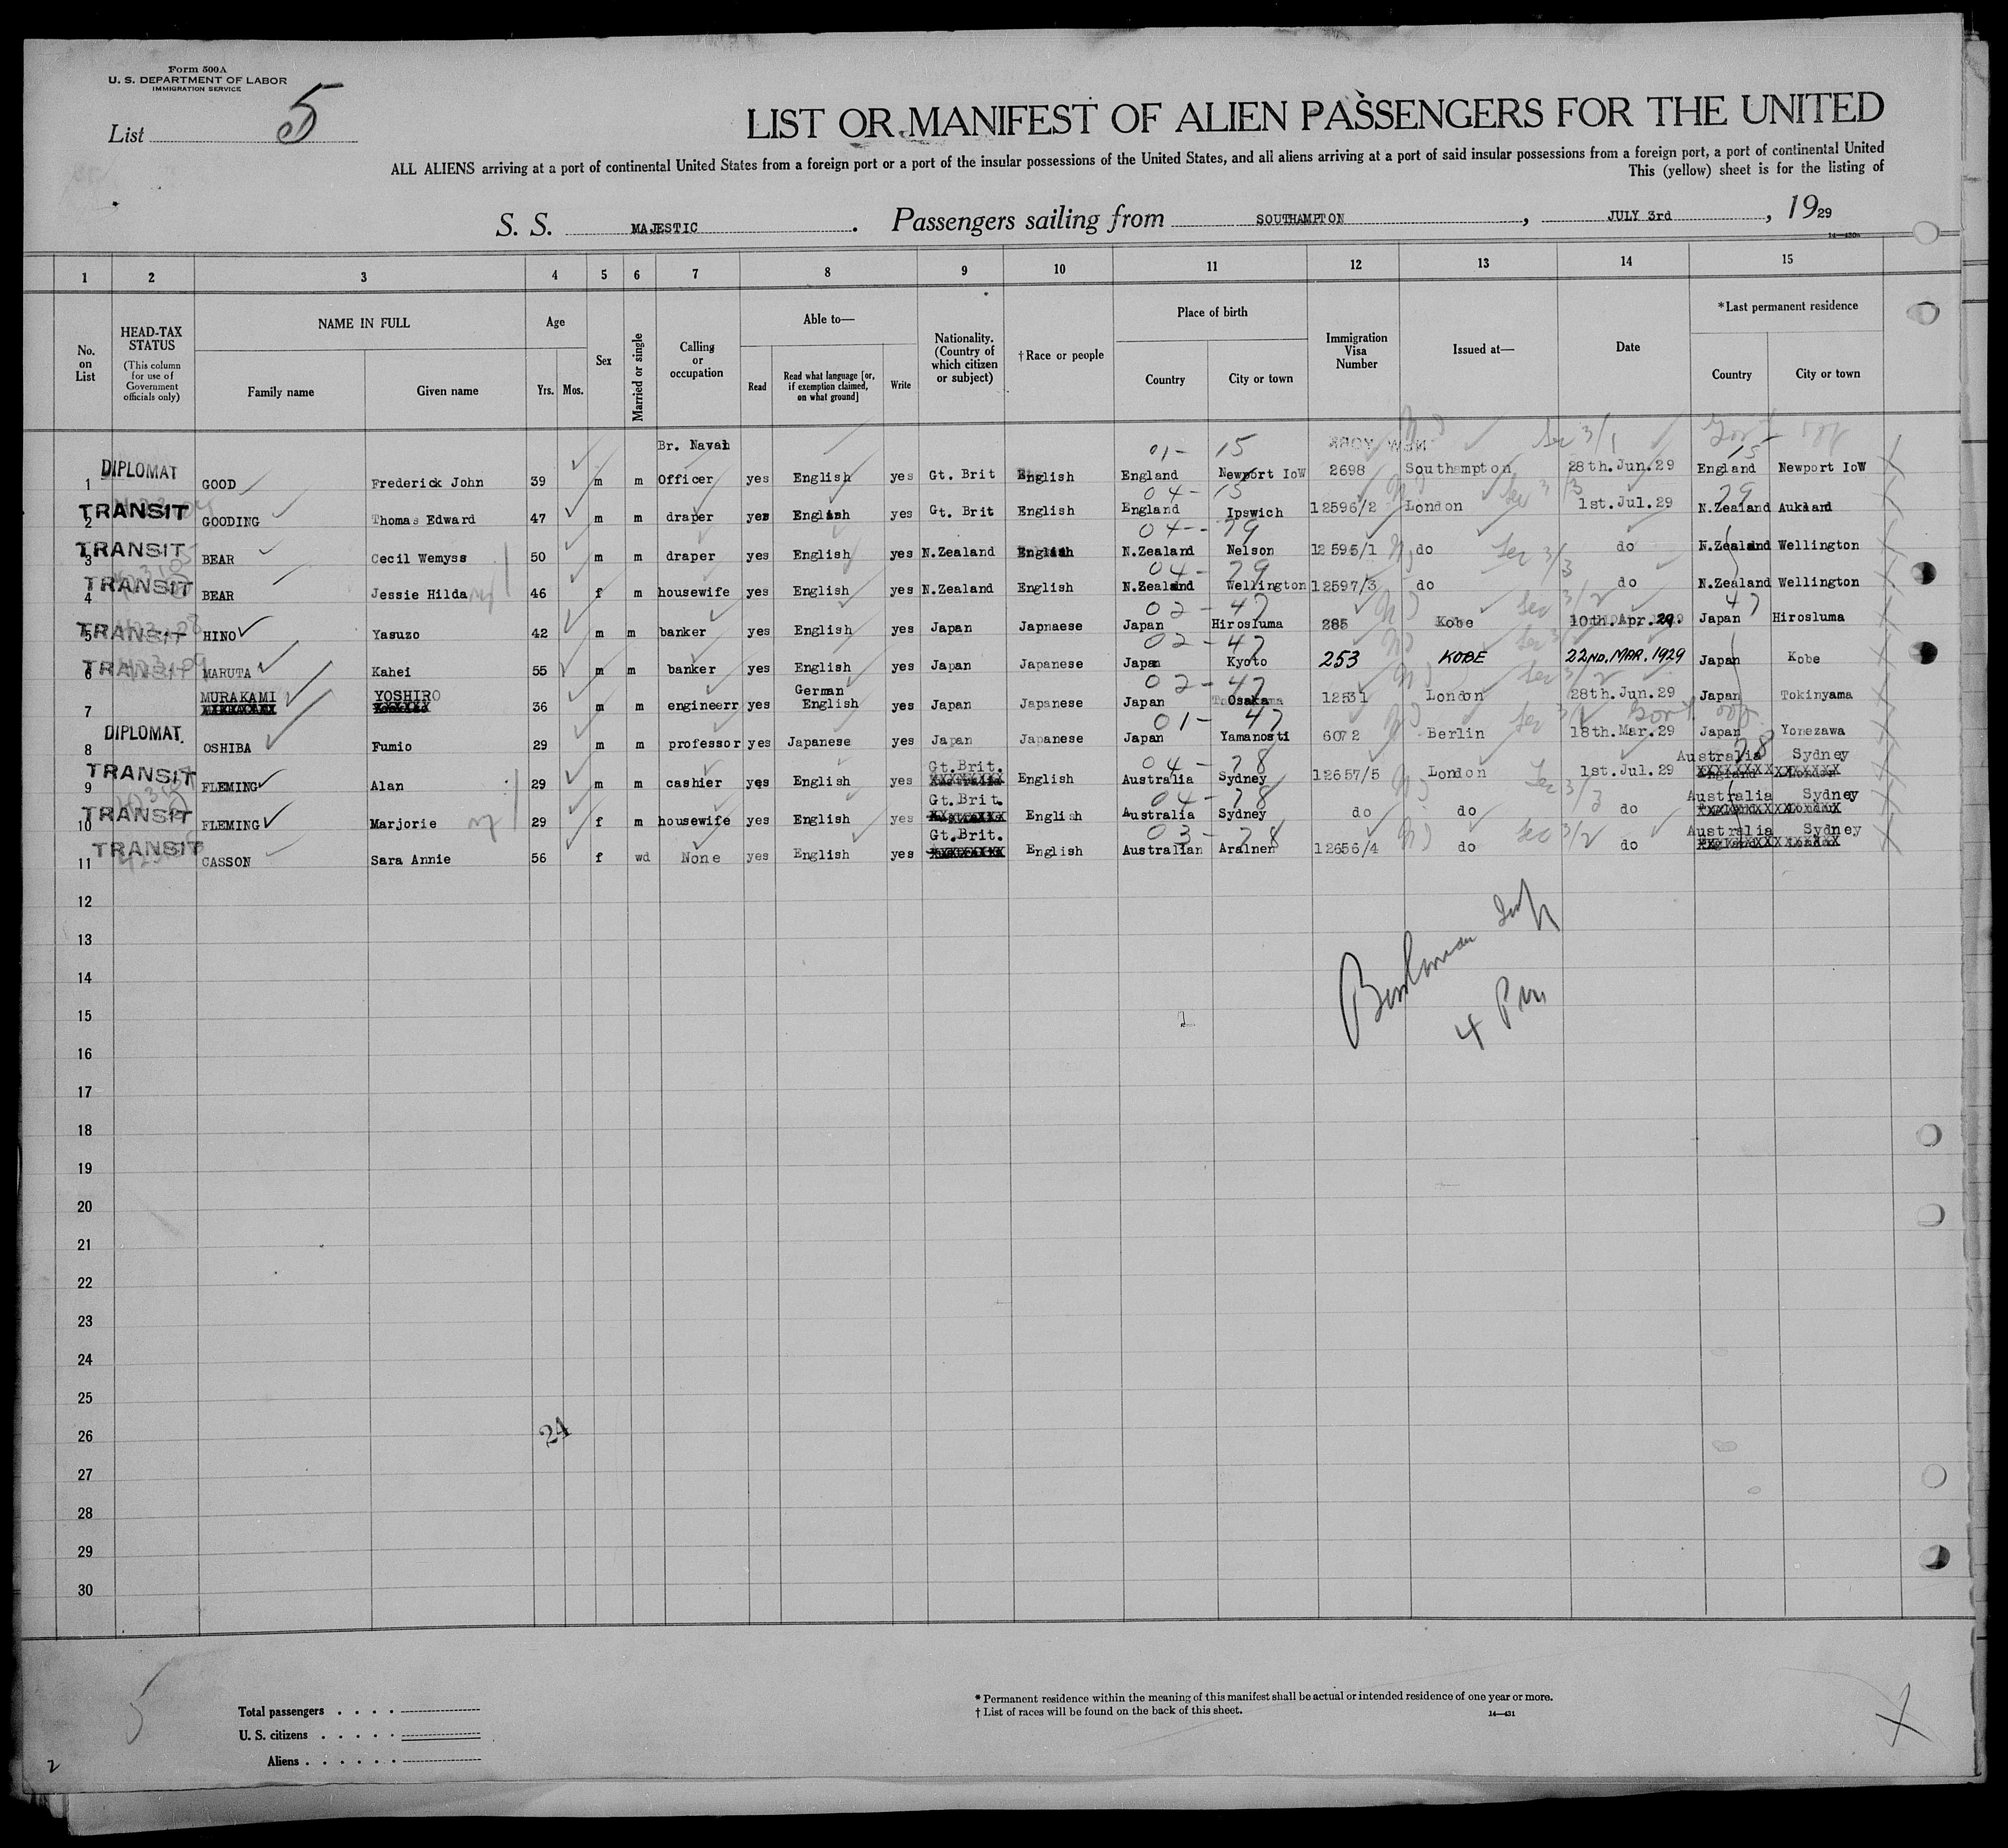 Form 500A
U. S. DEPARTMENT OF LABOR
IMMIGRATION SERVICE
List 5
LIST OR MANIFEST OF ALIEN PASSENGERS FOR THE UNITED
ALL ALIENS arriving at a port of continental United States from a foreign port or a port of the insular possessions of the United States, and all aliens arriving at a port of said insular possessions from a foreign port, a port of continental United
This (yellow) sheet is for the listing of
S. S. MAJESTIC. Passengers sailing from SOUTHAMPTON, JULY 3rd, 1929
1 2 3 4 5 6 7 8 9 10 11 12 13 14 15
No. on List
HEAD-TAX STATUS
(This column for use of Government officials only)
NAME IN FULL
Family name
Given name
Age
Yrs. Mos.
Sex
Married or single
Calling or occupation
Able to—
Read
Read what language [or, if exemption claimed, on what ground]
Write
Nationality. (Country of which citizen or subject)
†Race or people
Place of birth
Country
City or town
Immigration Visa Number
Issued at—
Date
*Last permanent residence
Country
City or town
NEW YORK
Br. Naval
01- 15 Sec 3/1 15
DIPLOMAT
1 GOOD Frederick John 39 m m Officer yes English yes Gt. Brit English England Newport IoW 2698 Southampton 28th.Jun.29 England Newport IoW
04- 15 Sec 3/3 79
TRANSIT
2 GOODING Thomas Edward 47 m m draper yes English yes Gt. Brit English England Ipswich 12596/2 London 1st.Jul.29 N.Zealand Aukland
04- 79
TRANSIT
3 BEAR Cecil Wemyss 50 m m draper yes English yes N.Zealand English N.Zealand Nelson 12595/1 do Sec 3/3 do N.Zealand Wellington
04- 79
TRANSIT
4 BEAR Jessie Hilda 46 f m housewife yes English yes N.Zealand English N.Zealand Wellington 12597/3 do do N.Zealand Wellington
02-47 Sec 3/2 47
TRANSIT
5 HINO Yasuzo 42 m m banker yes English yes Japan Japnaese Japan Hirosluma 285 Kobe 10th.Apr.29. Japan Hirosluma
02-47
TRANSIT
6 MARUTA Kahei 55 m m banker yes English yes Japan Japanese Japan Kyoto 253 KOBE 22ND.MAR.1929 Japan Kobe
02-47 Sec 3/2
MURAKAMI YOSHIRO German
7 36 m m engineerr yes English yes Japan Japanese Japan Osaka 12531 London 28th.Jun.29 Japan Tokinyama
01- 47
DIPLOMAT.
8 OSHIBA Fumio 29 m m professor yes Japanese yes Japan Japanese Japan Yamanosti 6072 Berlin 18th.Mar.29 Japan Yonezawa
04-78 78
Gt.Brit. Australia Sydney
TRANSIT
9 FLEMING Alan 29 m m cashier yes English yes English Australia Sydney 12657/5 London 1st.Jul.29
04-78 Sec 3/3
Gt.Brit. Australia Sydney
TRANSIT
10 FLEMING Marjorie 29 f m housewife yes English yes English Australia Sydney do do do
03-78 Sec 3/2
Gt.Brit. Australia Sydney
TRANSIT
11 CASSON Sara Annie 56 f wd None yes English yes English Australian Aralnen 12656/4 do do
12
13
14
15
16
17
18
19
20
21
22
23
24
25
26
27
28
29
30
4
24
5
Total passengers
U. S. citizens
Aliens
* Permanent residence within the meaning of this manifest shall be actual or intended residence of one year or more.
† List of races will be found on the back of this sheet.
14—431
2